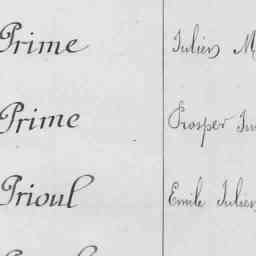 Prime Julien
Prime Prosper
Prioul Emile Julien